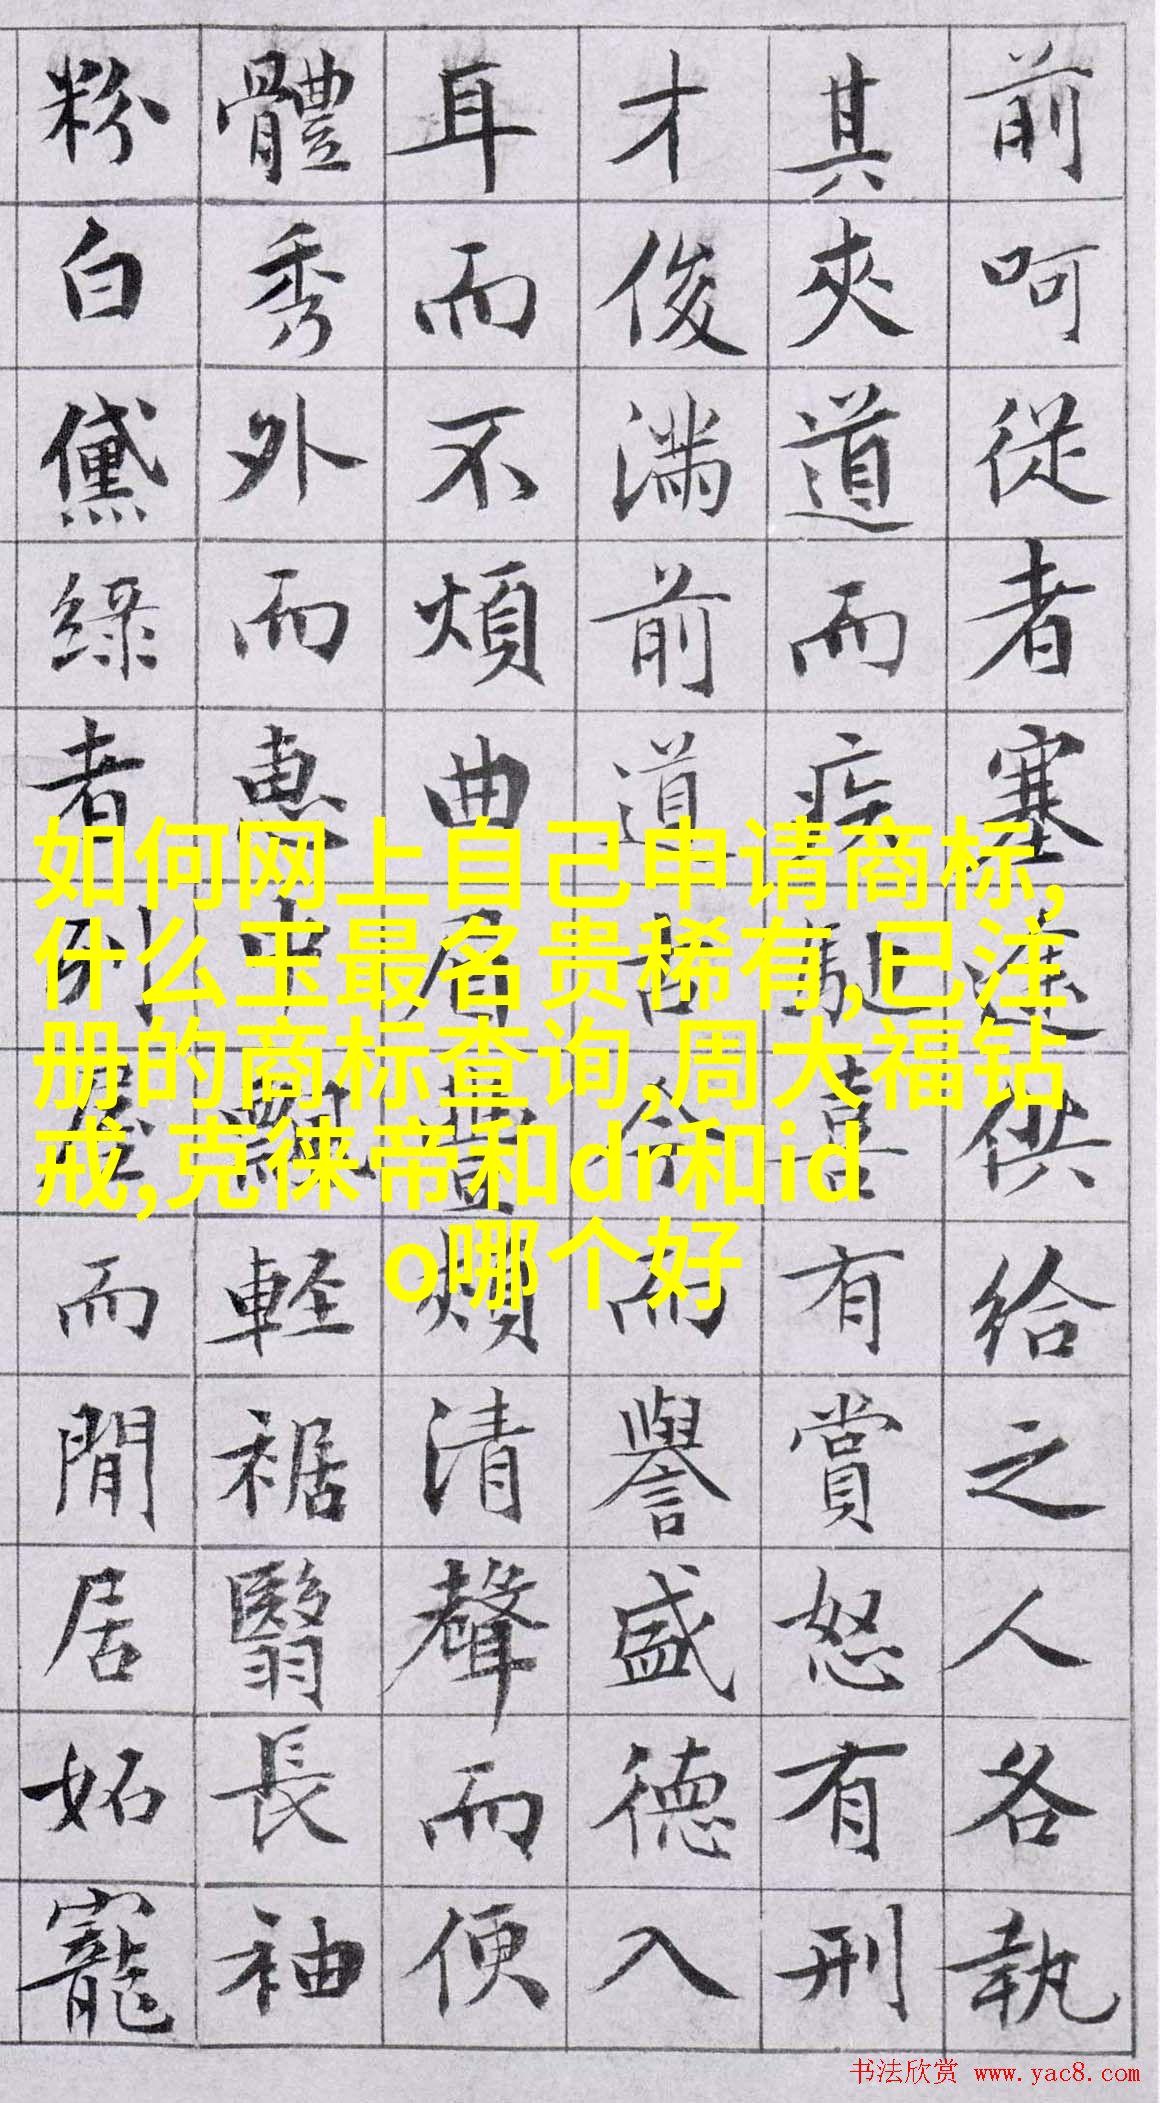 前呵從者塞途供給之人各執
其夾道而疾馳喜有賞怒有刑
才俊滿前道古今而譽盛德入
耳而不煩曲眉豐頰清聲而便
體秀外而惠中飄輕裾翳長袖
粉白黛綠者列屋而閒居妬寵
如何网上自己申请商标,
什么玉最名贵稀有,已注
册的商标查询,周大福钻
戒,克徕帝和dr和id
o哪个好
书法欣赏 www.yac8.com